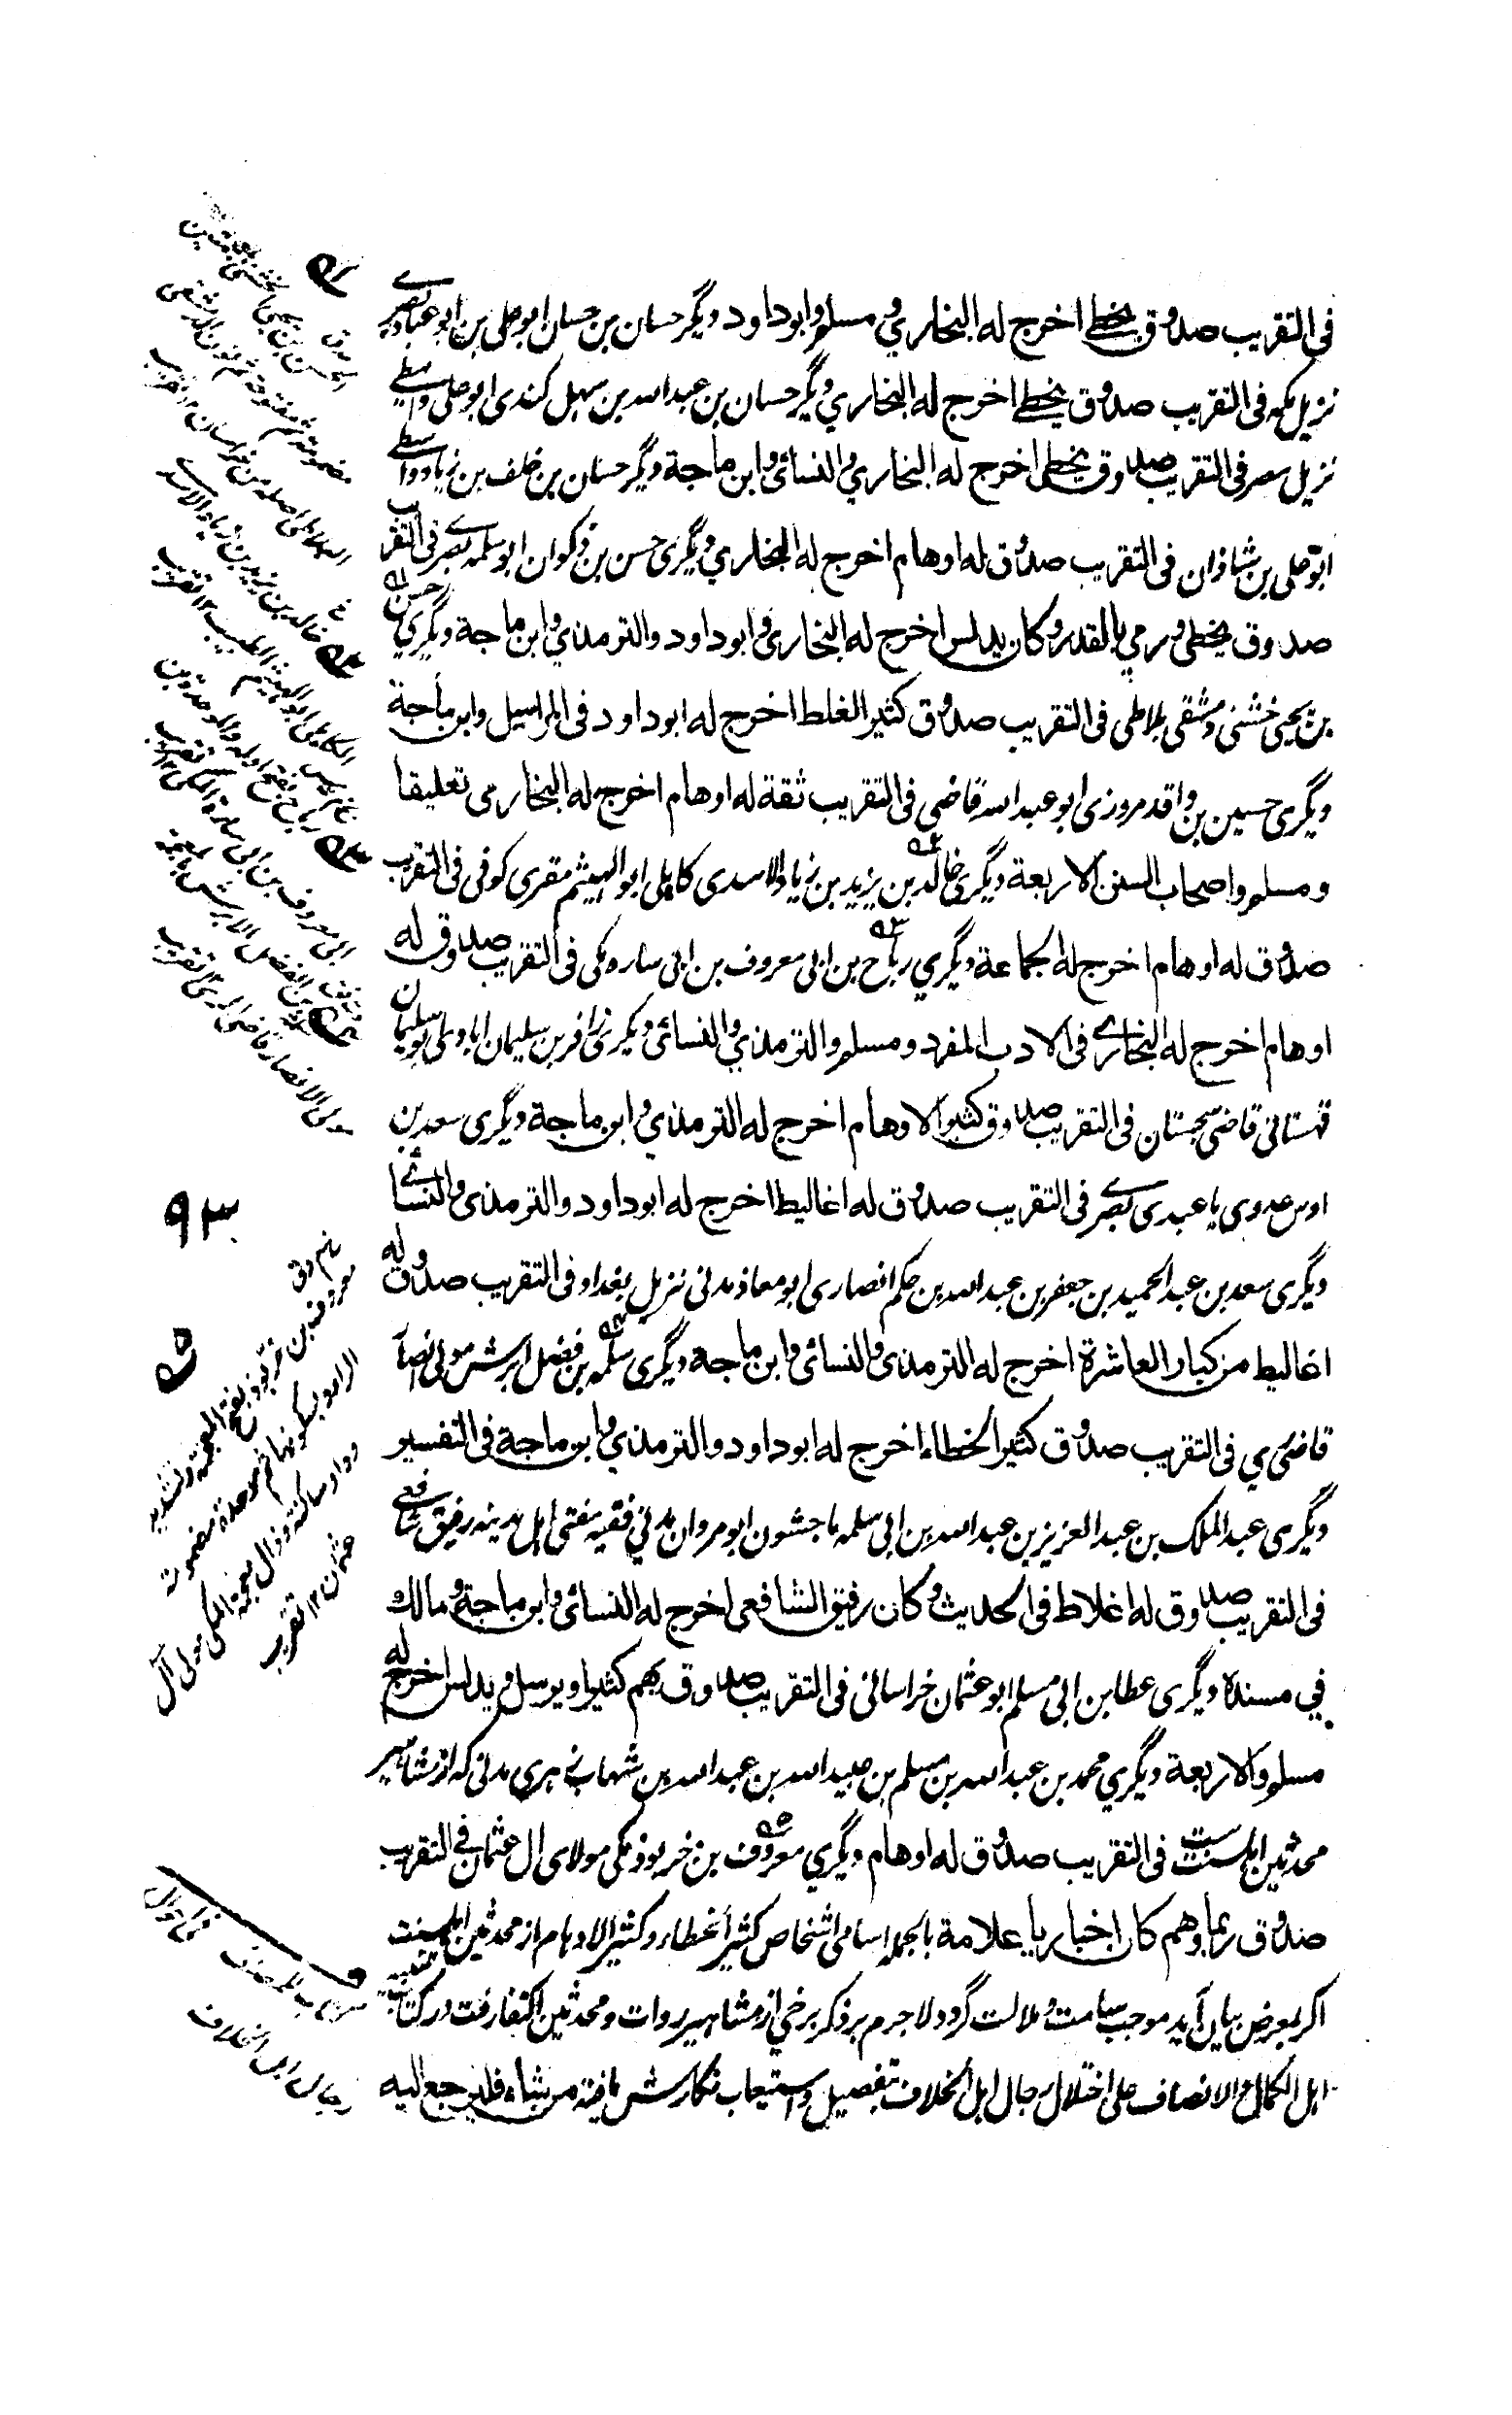 فی التقریب صدوق یخطے اخرج له البخاري و مسلم و ابوداود دیگر حسان بن حسان ابو علی بن ابو عباد بصرے
نزیل مکه فی التقریب صدوق یخطے اخرج له البخاري دیگر حسان بن عبدالله بن سهل کندی ابو علی واسطے
نزیل مصر فی التقریب صدوق یخطی اخرج له البخاري و النسائی و ابن ماجة دیگر حسان بن خلف بن زیاد واسطے
ابو علی بن شاذان فی التقریب صدوق له اوهام اخرج له البخاري دیگری حسن بن ذکوان ابو سلمه بصرے فی التقریب
صدوق یخطی و رمي بالقدر و کان یدلس اخرج له البخاری و ابوداود و الترمذي و ابن ماجة دیگري حسن
بن یحیی خشنی دمشقی بلاطی فی التقریب صدوق کثیر الغلط اخرج له ابوداود فی المراسیل و ابن ماجة
دیگری حسین بن واقد مروزی ابو عبدالله قاضی فی التقریب ثقة له اوهام اخرج له البخارمی تعلیقا
و مسلم و اصحاب السنن الاربعة دیگری خالد بن یزید بن زیاد الاسدی کاهلی ابو الهیثم مقری کوفی فی التقریب
صدوق له اوهام اخرج له الجماعة دیگري رباح بن ابی معروف بن ابی ساره مکی فی التقریب صدوق له
اوهام اخرج له البخارے فی الادب المفرد و مسلم و الترمذي و النسائی دیگری زافر بن سلیمان ایادی ابو سلیمان
قهستانی قاضی سجستان فی التقریب صدوق کثیر الاوهام اخرج له الترمذي و ابن ماجة دیگری سعد بن
اوس عدوی یا عبدی بصرے فی التقریب صدوق له اغالیط اخرج له ابوداود و الترمذی و النسائے
دیگری سعد بن عبد الحمید بن جعفر بن عبدالله بن حکم انصاری ابو معاذ مدنی نزیل بغداد فی التقریب صدوق له
اغالیط من کبار العاشرة اخرج له الترمذی و النسائی و ابن ماجه دیگری سلمه بن فضل ابرش مولی انصار
قاضی ري فی التقریب صدوق کثیر الخطاء اخرج له ابوداود و الترمذي و ابن ماجة فی التفسیر
دیگری عبد الملک بن عبد العزیز بن عبدالله بن ابی سلمه ماجشون ابو مروان مدنی فقیه مفتی اهل مدینه رفیق شافعے
فی التقریب صدوق له اغلاط فی الحدیث و کان رفیق الشافعی اخرج له النسائی و ابن ماجة و مالك
في مسنده دیگری عطا بن ابی مسلم ابو عثمان خراسانی فی التقریب صدوق یهم کثیرا و یرسل و یدلس اخرج له
مسلم و الاربعة دیگري محمد بن عبدالله بن مسلم بن عبیدالله بن عبدالله بن شهاب زهري مدنی که از مشاهیر
محدثین اهلسنت فی التقریب صدوق له اوهام دیگري معروف بن خربوذ مکی مولای ال عثمان فے التقریب
صدوق ربما وهم کان اخباریا علامة بالجمله اسامی اشخاص کثیر الخطاء و کثیر الاوهام از محدثین اهلسنت
اگر بمعرض بیان آید موجب سآمت و ملالت گردد لاجرم بر ذکر برخي از مشاهیر روات و محدثین اکتفا رفت و در کتاب تنبیه
اهل الکمال و الانصاف علی اختلال رجال اهل الخلاف بتفصیل و استیعاب نگارش یافته من شاء فلیرجع الیه
خالد بن یزید بن زیاد الاسدے
الکاهلی ابو الهیثم الطبیب ۱۲ تقریب
۹۳
معروف بن خربوذ بفتح المعجمة و تشدید
الراء و بسکونها ثم موحدة مضمومة
و واو ساکنة و ذال معجمة المکی مولی آل
عثمان ۱۲ تقریب
رجال اهل الخلاف